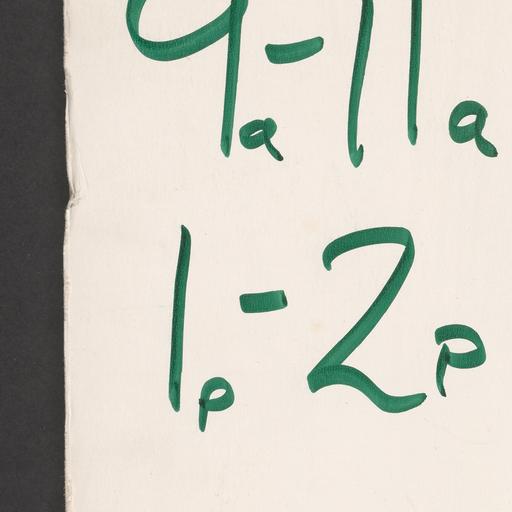 9a-11a
1p-2p